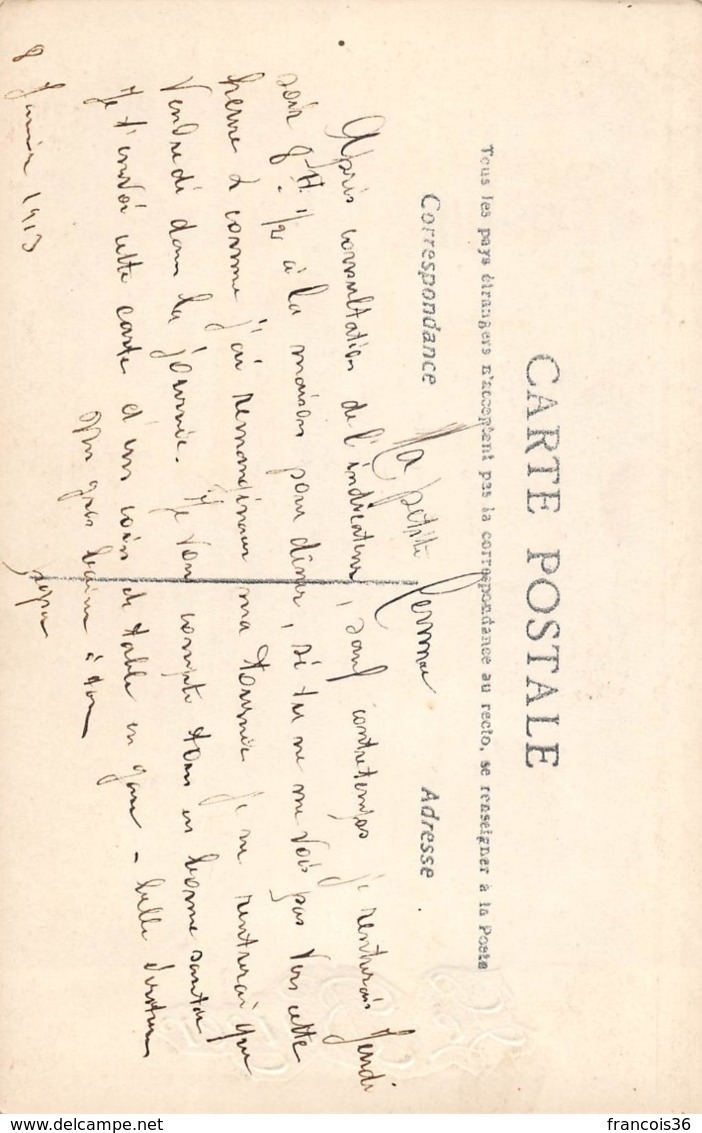 CARTE POSTALE
Tous les pays étrangers n'acceptent pas la correspondance au recto, se renseigner à la Poste
Correspondance
Adresse
Ma petite
Après consultation de l'indicateur, sauf contretemps je rentrerais Jeudi
soir 8H 1/2 à la maison pour dîner, si tu ne me vois pas vers cette
heure & comme j'ai remanginer ma tournée je ne rentrerai que
Vendredi dans la journée. Je vous compte tous en bonne santée
Je t'envoi cette carte d'un coin de table en gare - belle
Un gros baiser à ton
papa
8 Janvier 1913
francois36